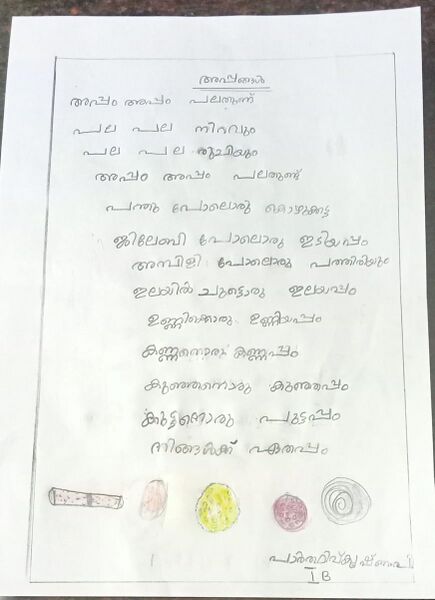 അപ്പങ്ങൾ
അപ്പം അപ്പം പലതുണ്ട്
പല പല നിറവും
പല പല രുചിയും
അപ്പം അപ്പം പലതുണ്ട്
പന്തു പോലൊരു കൊഴുക്കട്ട
ജിലേബി പോലൊരു ഇടിയപ്പം
അമ്പിളി പോലൊരു പത്തിരിയും
ഇലയിൽ ചുട്ടൊരു ഇലയപ്പം
ഉണ്ണിക്കൊരു ഉണ്ണിയപ്പം
കണ്ണനൊരു കണ്ണപ്പം
കുഞ്ഞനൊരു കുഞ്ഞപ്പം
കുട്ടനൊരു പുട്ടപ്പം
നിങ്ങൾക്ക് ഏതപ്പം
I B